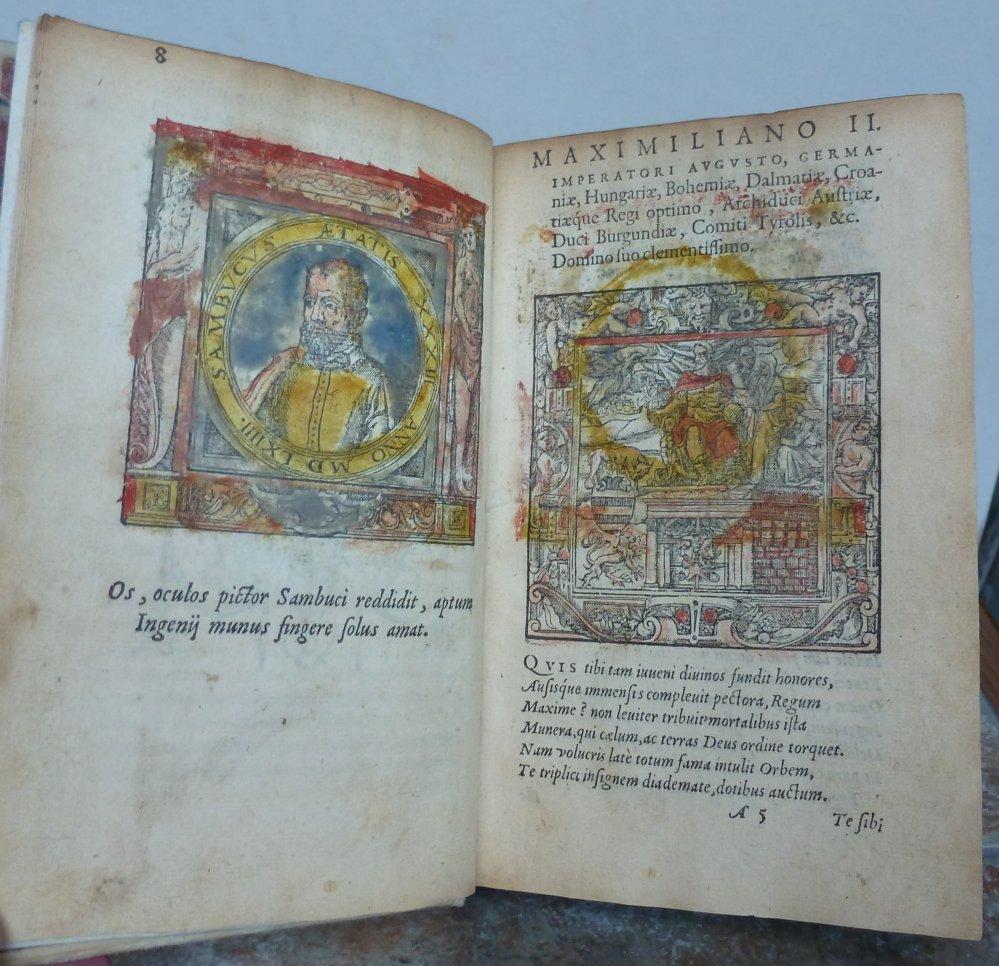 8
SAMBVCVS ÆTATIS XXXIII. ANNO MD LXIIII.
Os, oculos pictor Sambuci reddidit, aptum
Ingenij munus fingere ſolus amat.
MAXIMILIANO II.
IMPERATORI AVGVSTO, GERMA-
niæ, Hungariæ, Bohemiæ, Dalmatiæ, Croa-
tiæque Regi optimo, Archiduci Auſtriæ,
Duci Burgundiæ, Comiti Tyrolis, &c.
Domino ſuo clementiſſimo.
QVIS tibi tam iuueni diuinos fundit honores,
Auſisque immenſis compleuit pectora, Regum
Maxime? non leuiter tribuit mortalibus iſta
Munera, qui cælum, ac terras Deus ordine torquet.
Nam volucris latè totum fama intulit Orbem,
Te triplici inſignem diademate, dotibus auctum.
A 5
Te ſibi